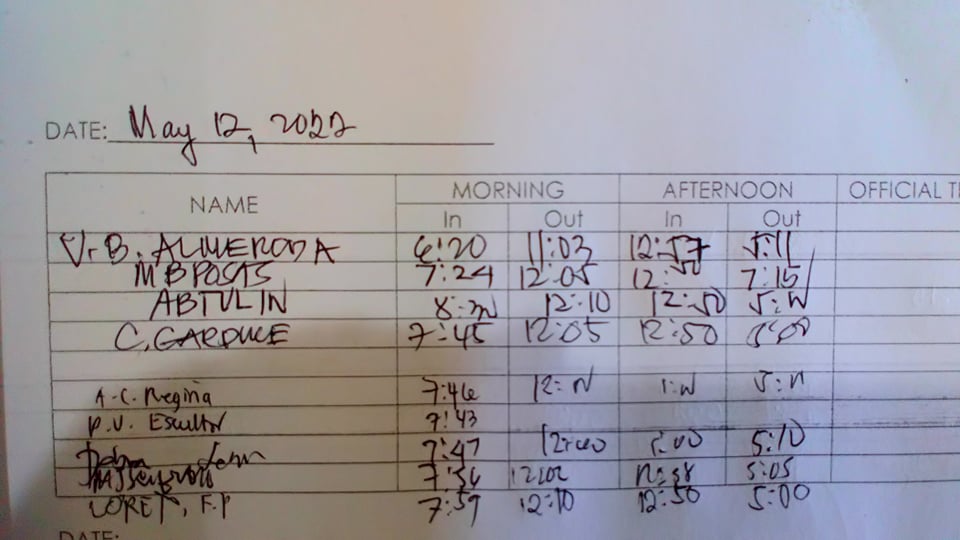 DATE: May 12, 2022
NAME MORNING AFTERNOON OFFICIAL
In Out In Out
B. ALMERODA 6:20 11:03 12:57 5:11
M B POSAS 7:24 12:05 12:50 7:15
ABTULIN 12:10 12:50
C. GARDUCE 7:45 12:05 12:50 5:00
A.C. Regina 7:46
P.V. Escultor 7:43
7:47 12:00 1:00 5:10
7:56 12:02 12:58 5:05
LORET, F.P 7:59 12:10 12:50 5:00
DATE: